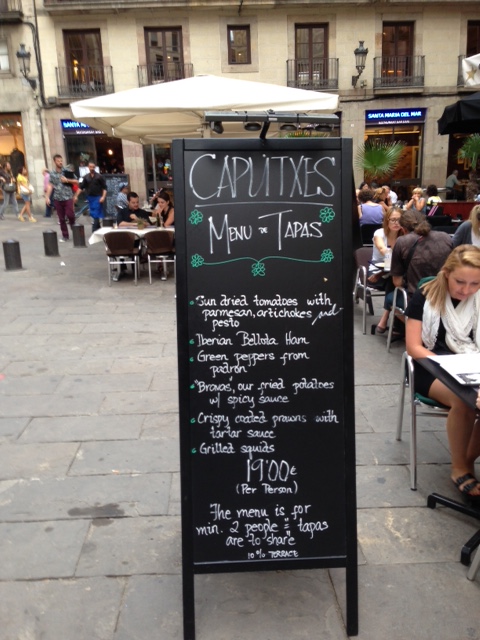 SANTA MARIA DEL MAR
CAPUITXES
MENU DE TAPAS
Sun dried tomatoes with
parmesan, artichokes and
pesto
Iberian Bellota Ham
Green peppers from
padron
"Bravas", our fried potatoes
w/ spicy sauce
Crispy coated prawns with
tartar sauce
Grilled squids
19'00€
(Per Person)
The menu is for
min. 2 people = tapas
are to share
10% TERRACE